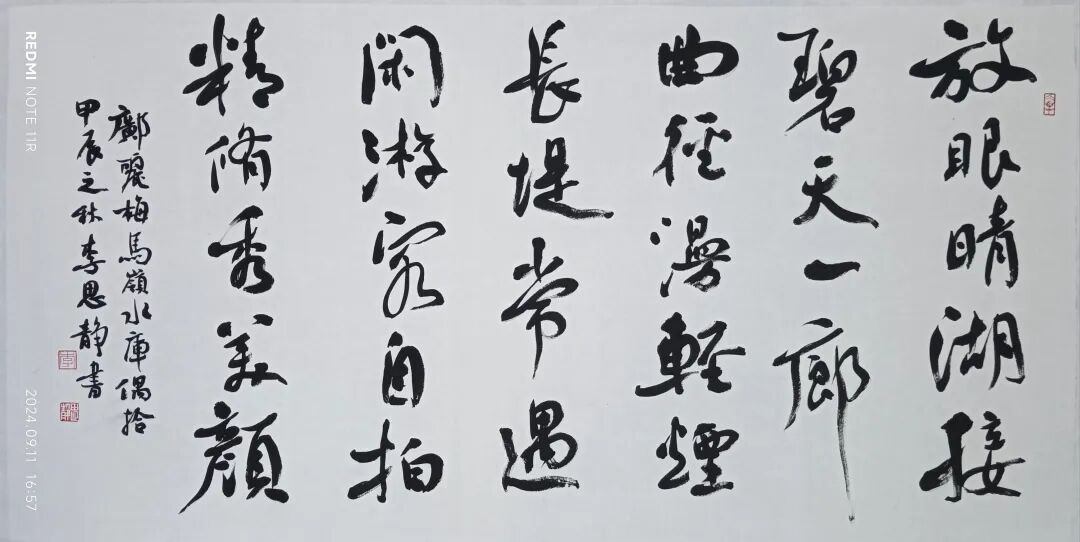 放眼晴湖接
碧天一廊
曲徑漫輕煙
長堤常遇
閑游客自拍
精脩秀美顏
鄺麗梅馬嶺水庫偶拾
甲辰之秋李思靜書
REDMI NOTE 11R
2024.09.11 16:57